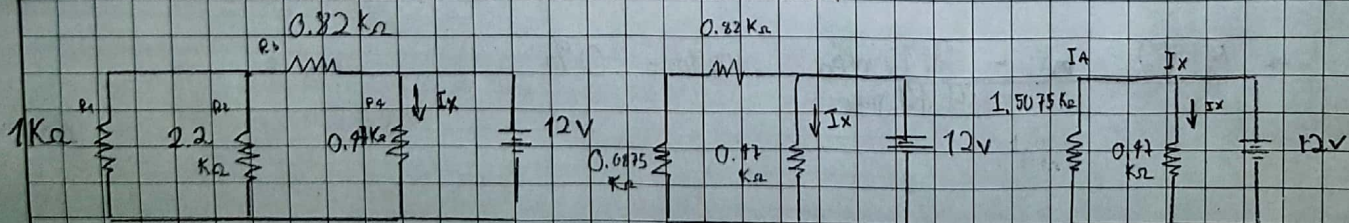 0.82 KΩ
R3
R1
R2
R4
Ix
1KΩ
2.2
KΩ
0.47KΩ
12V
0.82 KΩ
0.6875
KΩ
0.47
KΩ
Ix
12V
IA
Ix
1.5075 KΩ
0.47
KΩ
Ix
12V